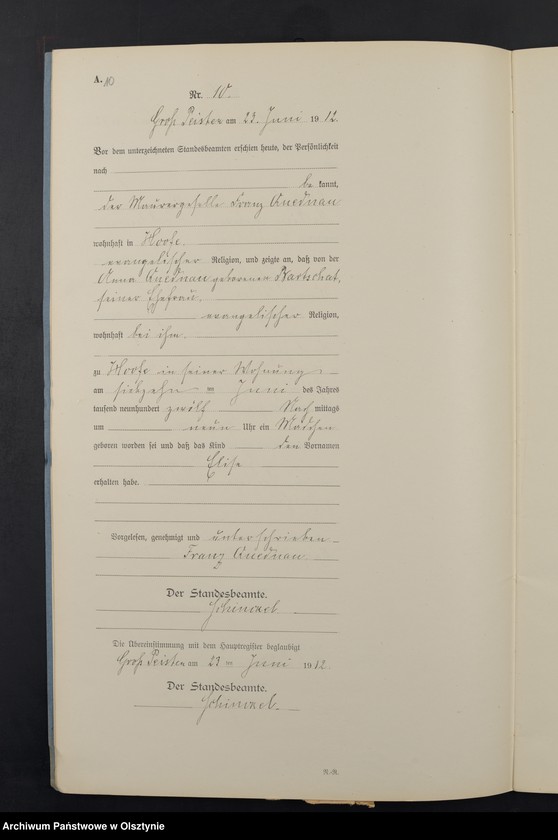 A. 10
Nr. 10.
Groß Peisten am 23. Juni 1912.
Vor dem unterzeichneten Standesbeamten erschien heute, der Persönlichkeit
nach
be kannt,
der Maurergeselle Franz Quednau
wohnhaft in
evangelischer Religion, und zeigte an, daß von der
Anna Quednau geborenen Bartschat,
seiner Ehefrau,
evangelischer Religion,
wohnhaft bei ihm,
zu in seiner Wohnung
am ten Juni des Jahres
tausend neunhundert zwölf Nach mittags
um neun Uhr ein Mädchen
geboren worden sei und daß das Kind den Vornamen
Elise
erhalten habe.
Vorgelesen, genehmigt und unterschrieben
Franz Quednau
Der Standesbeamte.
Die Übereinstimmung mit dem Hauptregister beglaubigt
Groß Peisten am 23 ten Juni 1912
Der Standesbeamte.
R.-R.
Archiwum Państwowe w Olsztynie